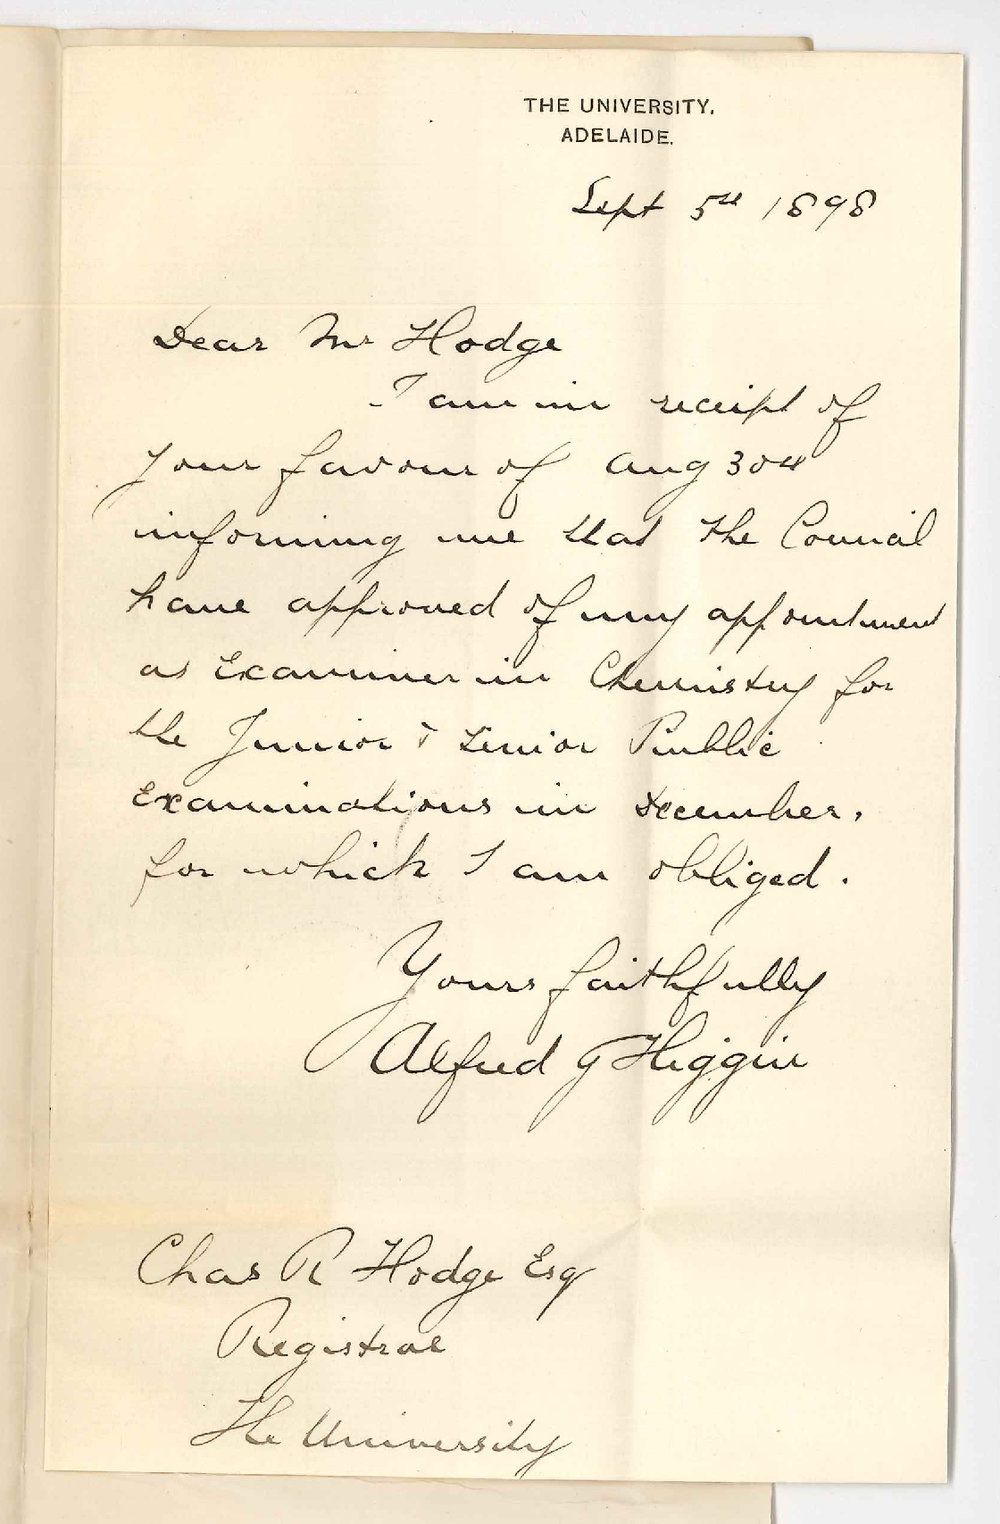 THE UNIVERSITY.
ADELAIDE.
Sept 5th 1898
Dear Mr Hodge
I am in receipt of
your favour of Aug 30th
informing me that the Council
have approved of my appointment
as Examiner in Chemistry for
the Junior & Senior Public
Examinations in December,
for which I am obliged.
Yours faithfully
Alfred G Higgin
Chas R Hodge Esq
Registrar
The University